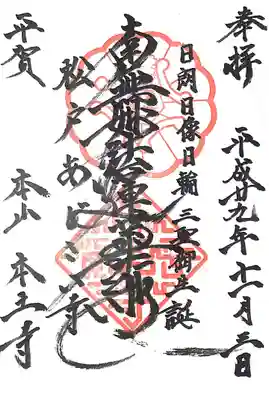 奉拝
平成廿九年十一月三日
日朗日像日輪 三聖御生誕
南無妙法蓮華経
松戸あじさい寺
平賀 本山 本土寺